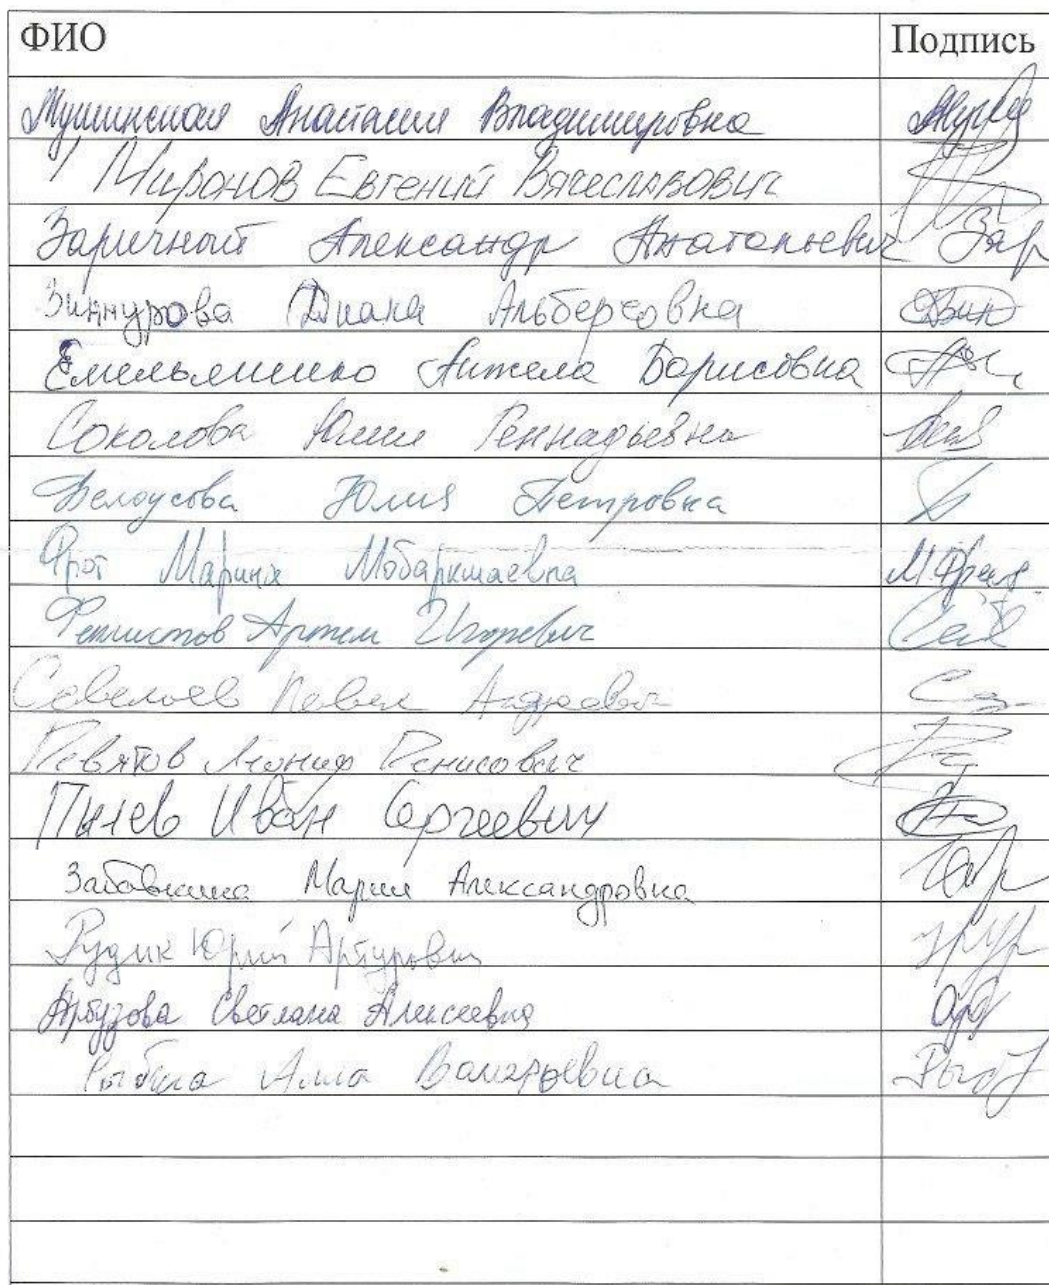 ФИО Подпись
Мушинская Анастасия Владимировна
Миронов Евгений Вячеславович
Заричный Александр Анатольевич Зар
Зиннурова Диана Альбертовна
Емельяненко Анжела Борисовна
Соколова Юлия Геннадьевна
Белоусова Юлия Петровна
Фрот Марина
Артем Игоревич
Павел Андреевич
Девятов Леонид Денисович
Пынев Иван Сергеевич
Мария Александровна
Рудик Юрий Артурович
Арбузова Светлана Алексеевна
Алла Валерьевна